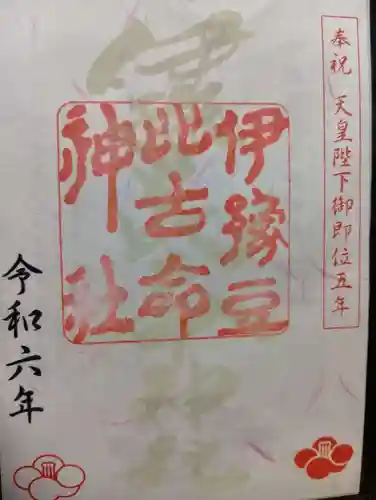 奉祝 天皇陛下御即位五年
伊豫豆
比古命
神社
令和六年